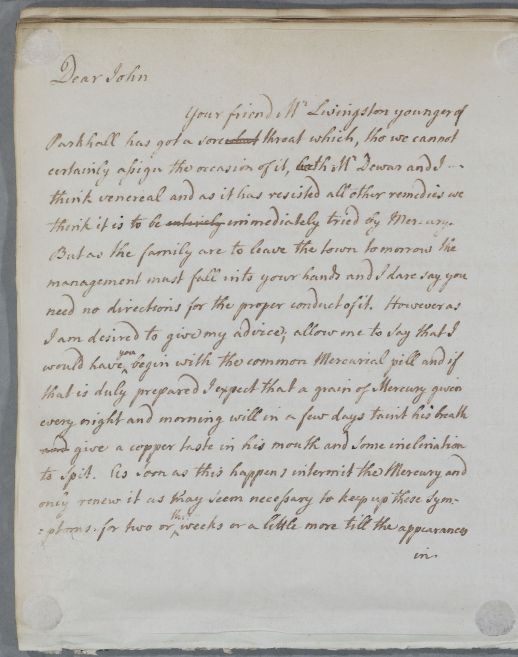 Dear John
Your friend Mr Livingston younger of
Parkhall has got a sore throat which, tho we cannot
certainly assign the occasion of it, both Mr Dewar and I
think venereal and as it has resisted all other remedies we
think it is to be entirely immediately tried by Mercury.
But as the family are to leave the town tomorrow the
management must fall into your hands and I dare say you
need no directions for the proper conduct of it. However as
I am desired to give my advice, allow me to say that I
would have you begin with the common Mercurial pill and if
that is duly prepared I expect that a grain of Mercury given
every night and morning will in a few days taint his breath
and give a copper taste in his mouth and some inclination
to spit. As soon as this happens intermit the Mercury and
only renew it as may seem necessary to keep up these sym-
-ptoms for two or three weeks or a little more till the appearances
in